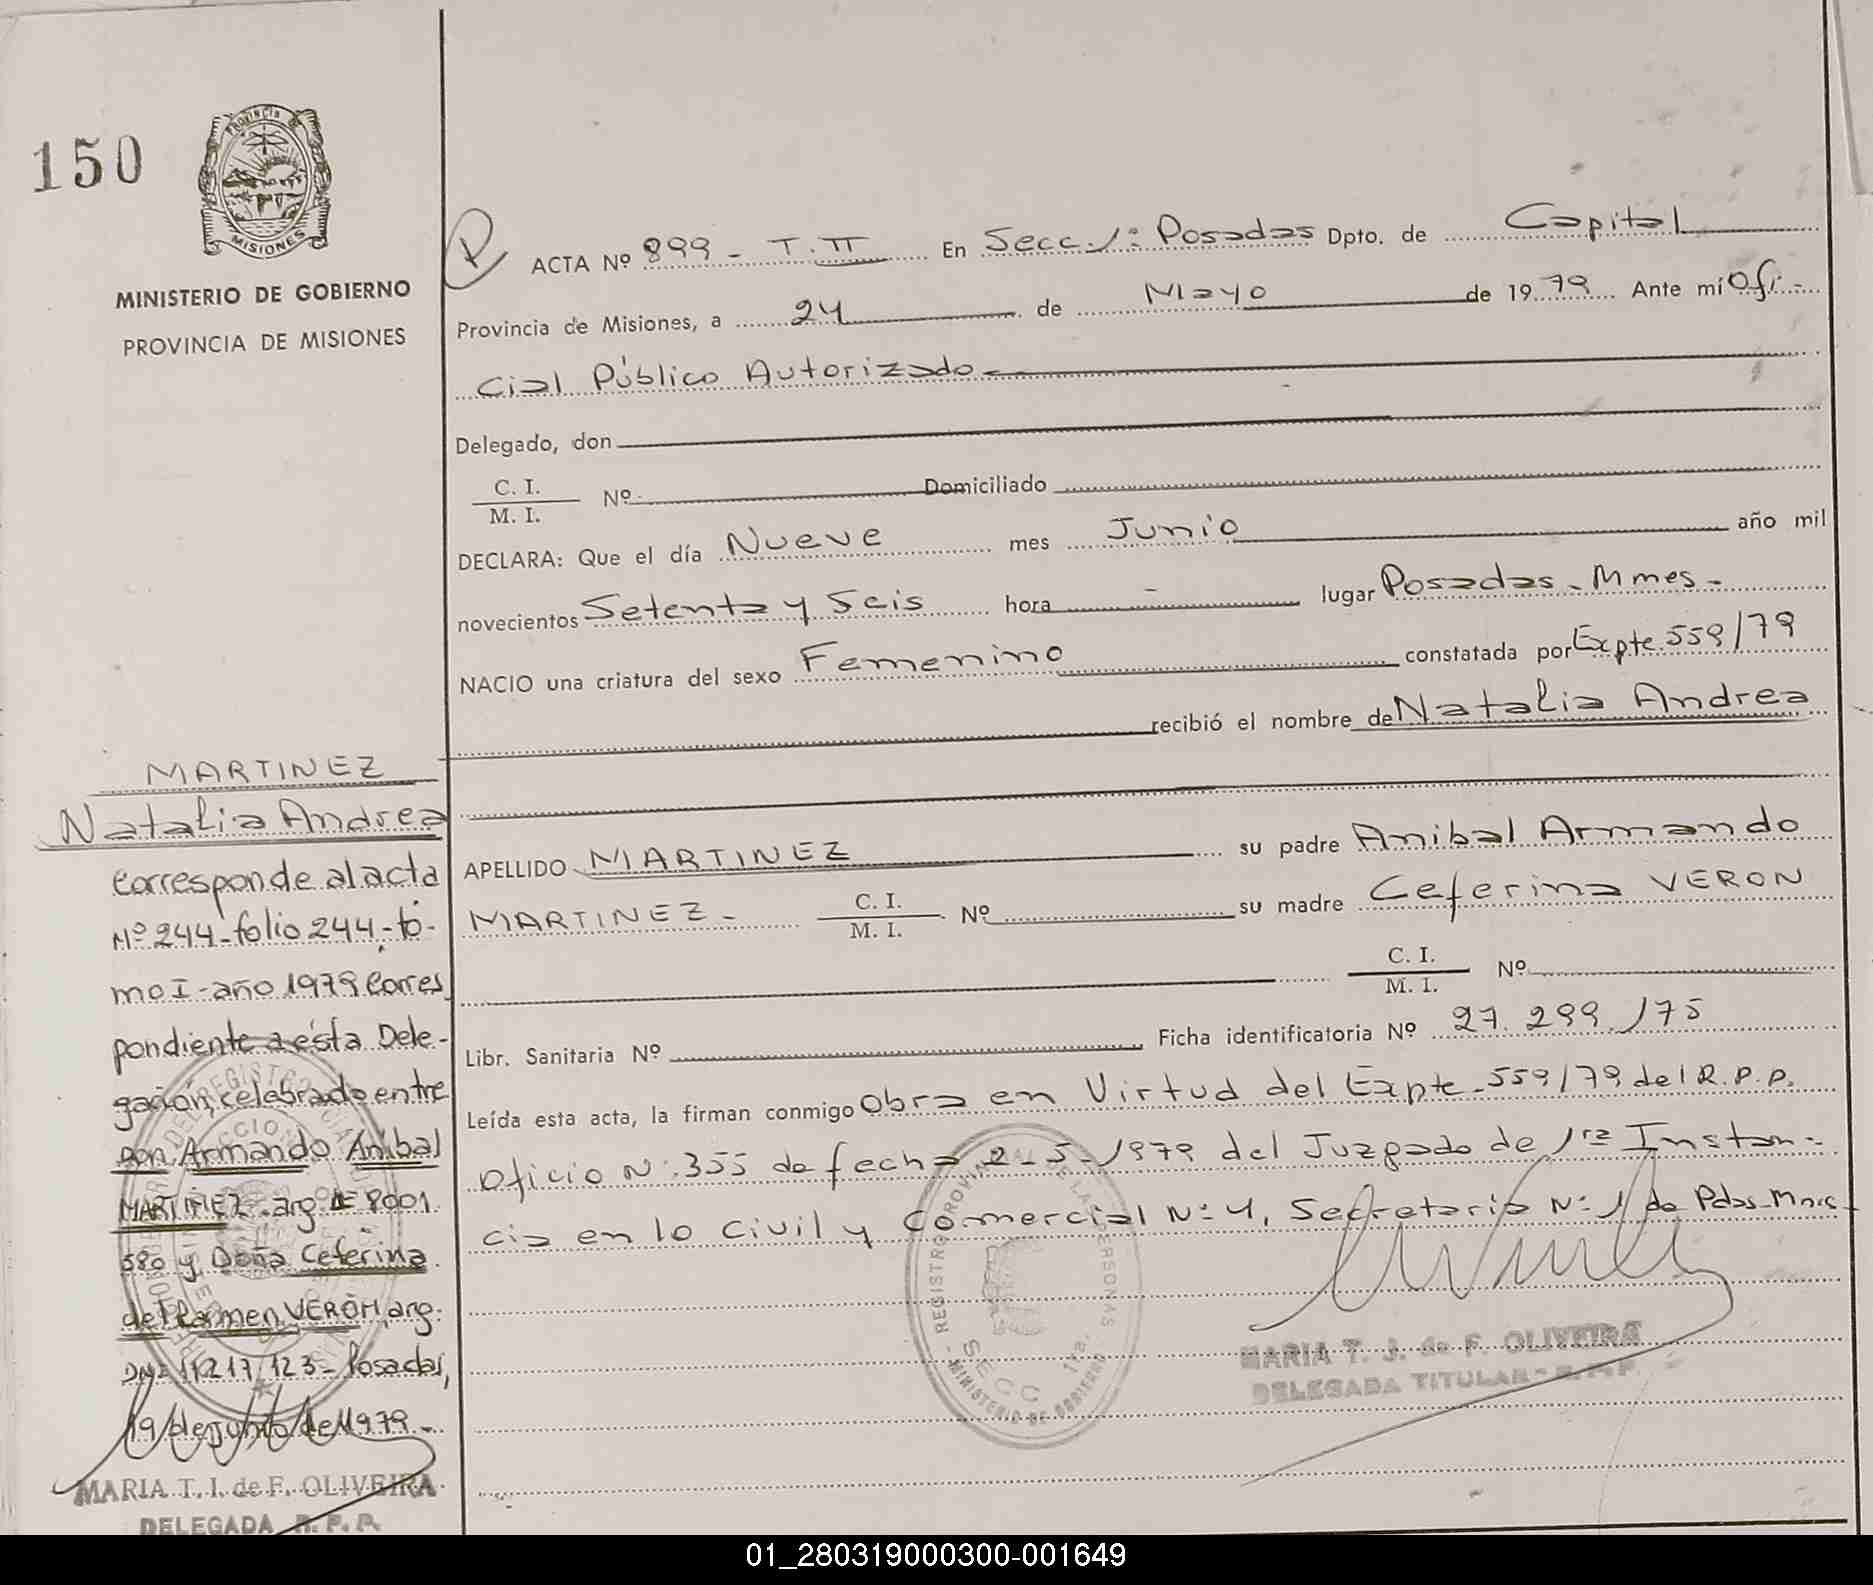 150
PROVINCIA DE
MISIONES
MINISTERIO DE GOBIERNO
PROVINCIA DE MISIONES
MARTINEZ
Natalia Andrea
Corresponde al acta
Nº 244-folio 244-to-
mo I-año 1979 Corres
pondiente a ésta Dele-
gación, celebrado entre
Don Armando Aníbal
MARTINEZ arg. LE 8001.
580 y Doña Ceferina
del Carmen VERON, arg.
DNI 11217123 - Posadas,
19 de junio de 1979.-
MARIA T. I. de F. OLIVEIRA
DELEGADA R. P. P.
ACTA Nº 899 - T. II En Secc. 1: Posadas Dpto. de Capital
Provincia de Misiones, a 24 de Mayo de 1979 Ante mí Ofi-
cial Público Autorizado
Delegado, don
C. I.
M. I. Nº Domiciliado
DECLARA: Que el día Nueve mes Junio año mil
novecientos Setenta y Seis hora - lugar Posadas - Mnes -
NACIO una criatura del sexo Femenino constatada por Expte. 559/79
recibió el nombre de Natalia Andrea
APELLIDO MARTINEZ su padre Anibal Armando
MARTINEZ - C. I. M. I. Nº su madre Ceferina VERON
C. I. M. I. Nº
Libr. Sanitaria Nº Ficha identificatoria Nº 27.299./75
Leída esta acta, la firman conmigo Obra en Virtud del Expte. 559/79 del R.P.P.
Oficio N: 355 de fecha 2-5-1979 del Juzgado de 1ra Instan-
cia en lo Civil y Comercial N: 4, Secretaria N: 1 de Pdas-Mnes
REGISTRO PROVINCIAL DE LAS PERSONAS
SECC. 1ra.
MINISTERIO DE GOBIERNO
MARIA T. J. de F. OLIVEIRA
DELEGADA TITULAR - R. P. P.
01_280319000300-001649